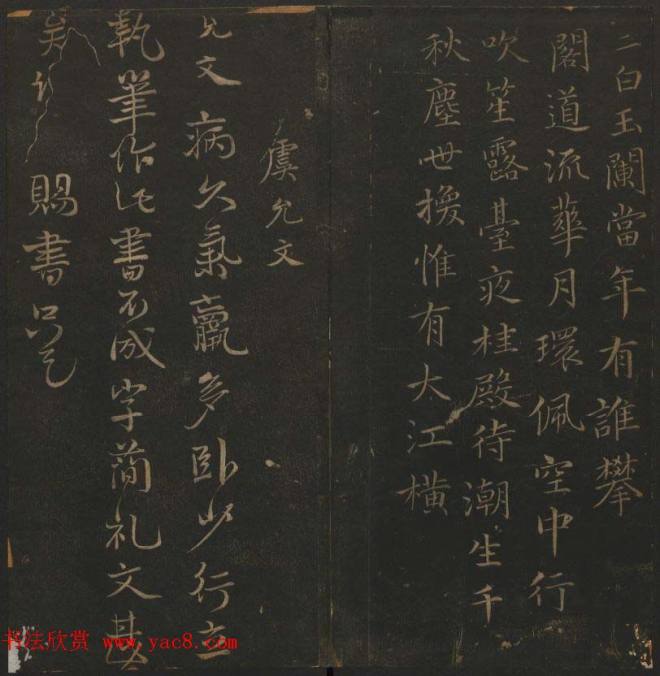 二白玉闌當年有誰攀
閣道流華月環佩空中行
吹笙露臺夜桂殿待潮生千
秋塵世換惟有大江橫
虞允文
允文病久氣羸多卧少行立
執筆作此書不成字簡礼文甚
賜書
书法欣赏 www.yac8.com